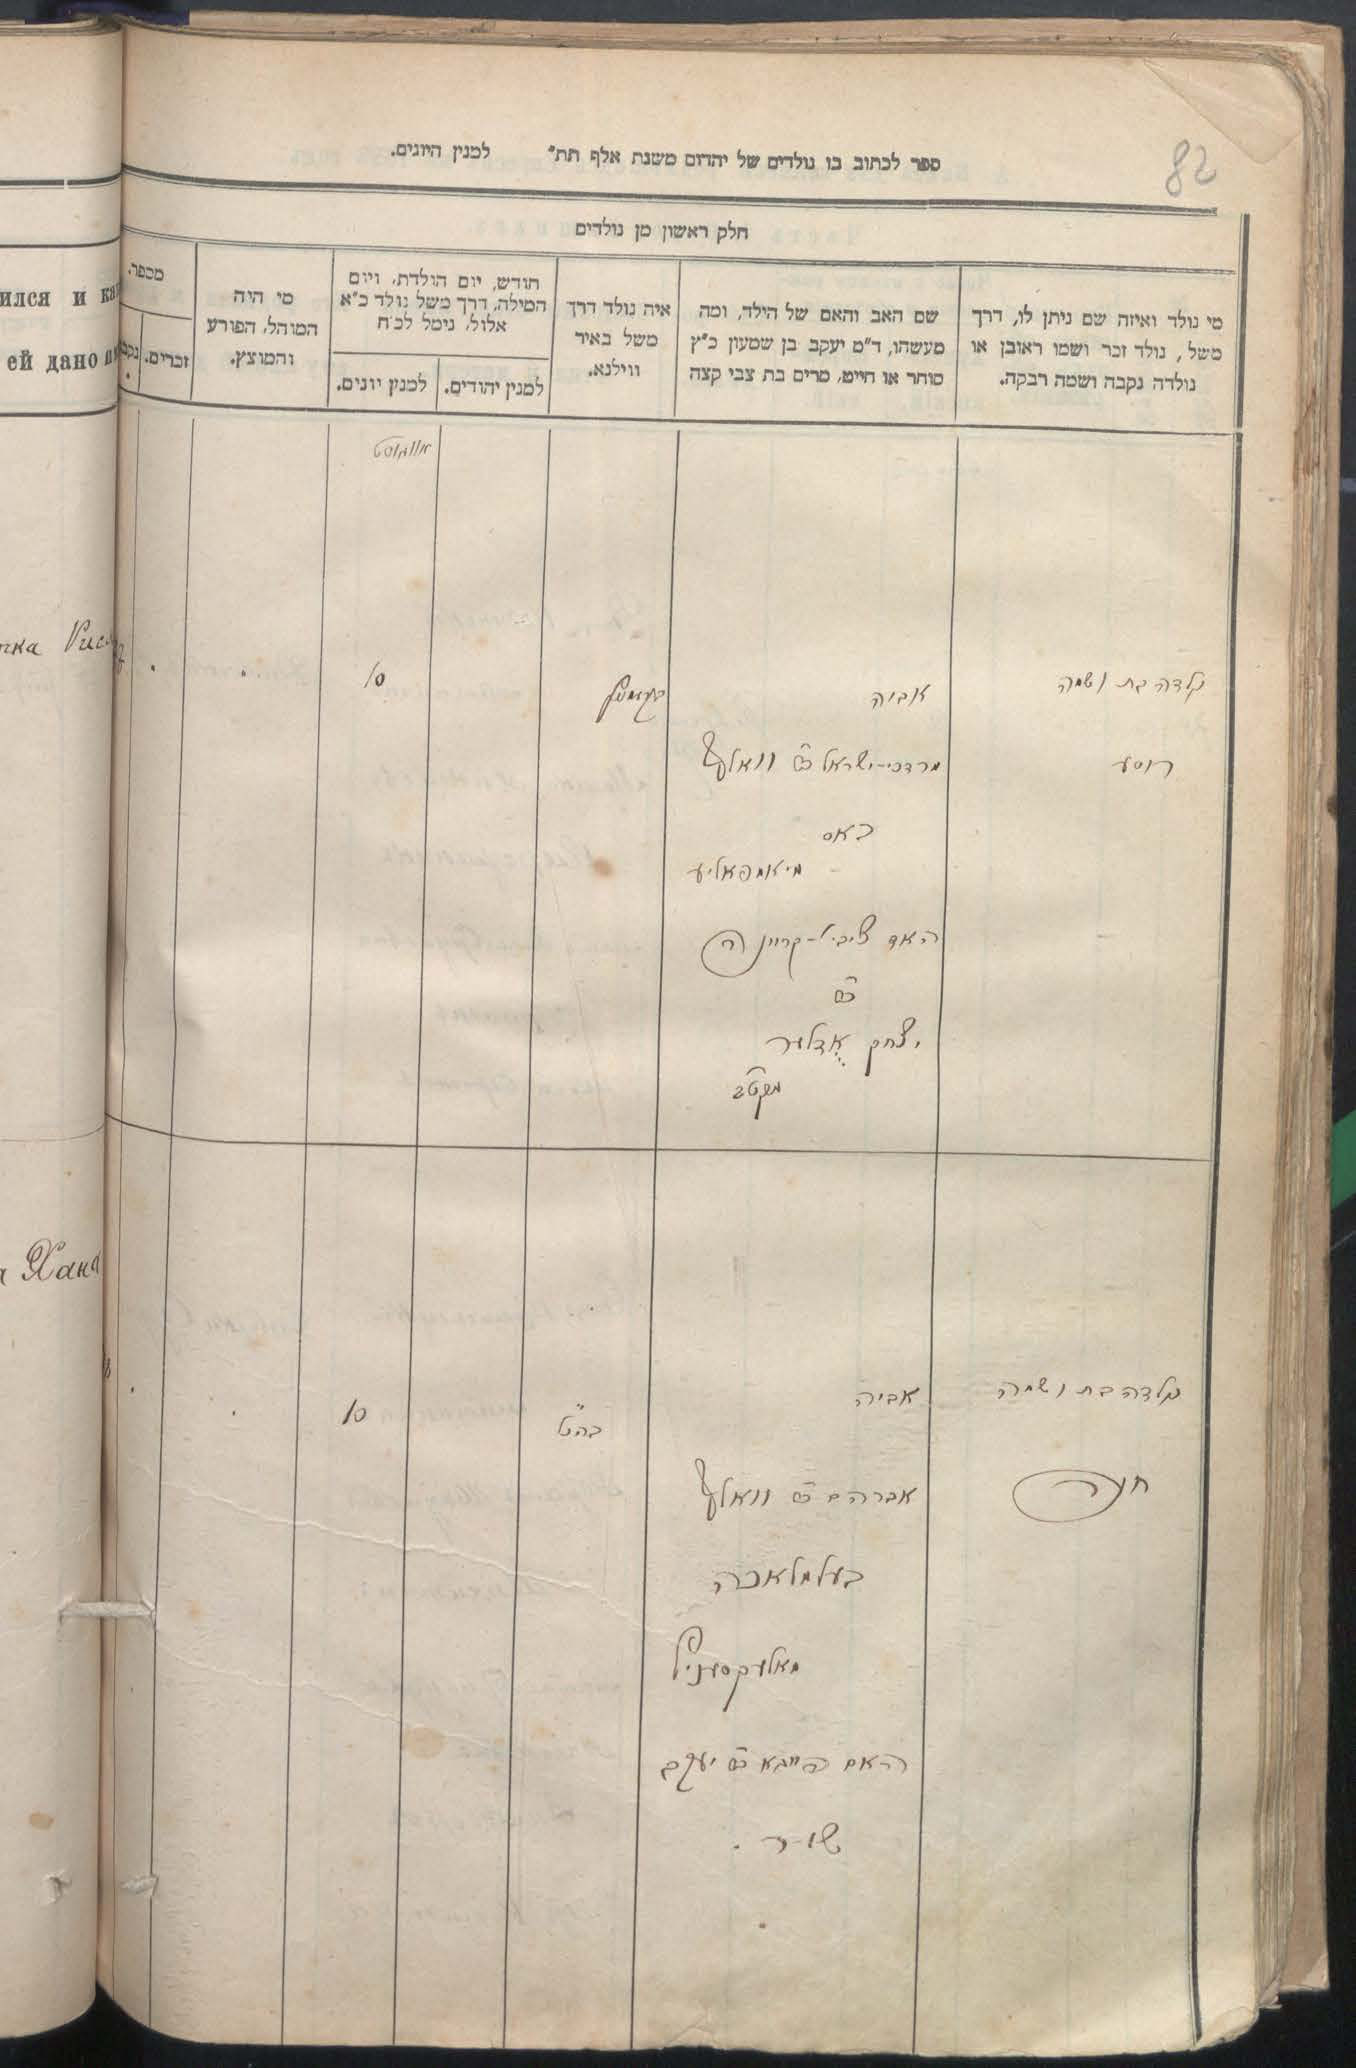 82
ספר לכתוב בו נולדים של יהדום משנת אלף תת״ למנין היונים.
חלק ראשון מן נולדים
מי נולד ואיזה שם ניתן לו, דרך
משל, נולד זכר ושמו ראובן או
נולדה נקבה ושמה רבקה.
שם האב והאם של הילד, ומה
מעשהו, ד״מ יעקב בן שמעון כ״ץ
סוחר או חייט, מרים בת צבי קצה
איה נולד דרך
משל באיר
ווילנא.
חודש, יום הולדת, ויום
המילה, דרך משל נולד כ״א
אלול, נימל לכ״ח
למנין יהודים.
למנין יונים.
מי היה
המוהל, הפורע
והמוצץ.
מספר.
זכרים.
נקב
ился и ка
ей дано и
אווגוסט
нка Рис
נולדה בת ושמה
רוסע
אביה
מרדכי-ישראל ב״ר וואלף
האם
ב״ר
יצחק אדלער
10
Хана
נולדה בת ושמה
חנה
אביה
אברהם ב״ר וואלף
בעל מלאכה
האם פייגא ב״ר יעקב
10